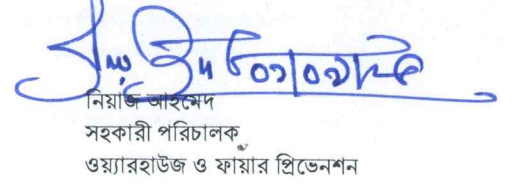 নিয়াজ আহমেদ
সহকারী পরিচালক
ওয়্যারহাউজ ও ফায়ার প্রিভেনশন